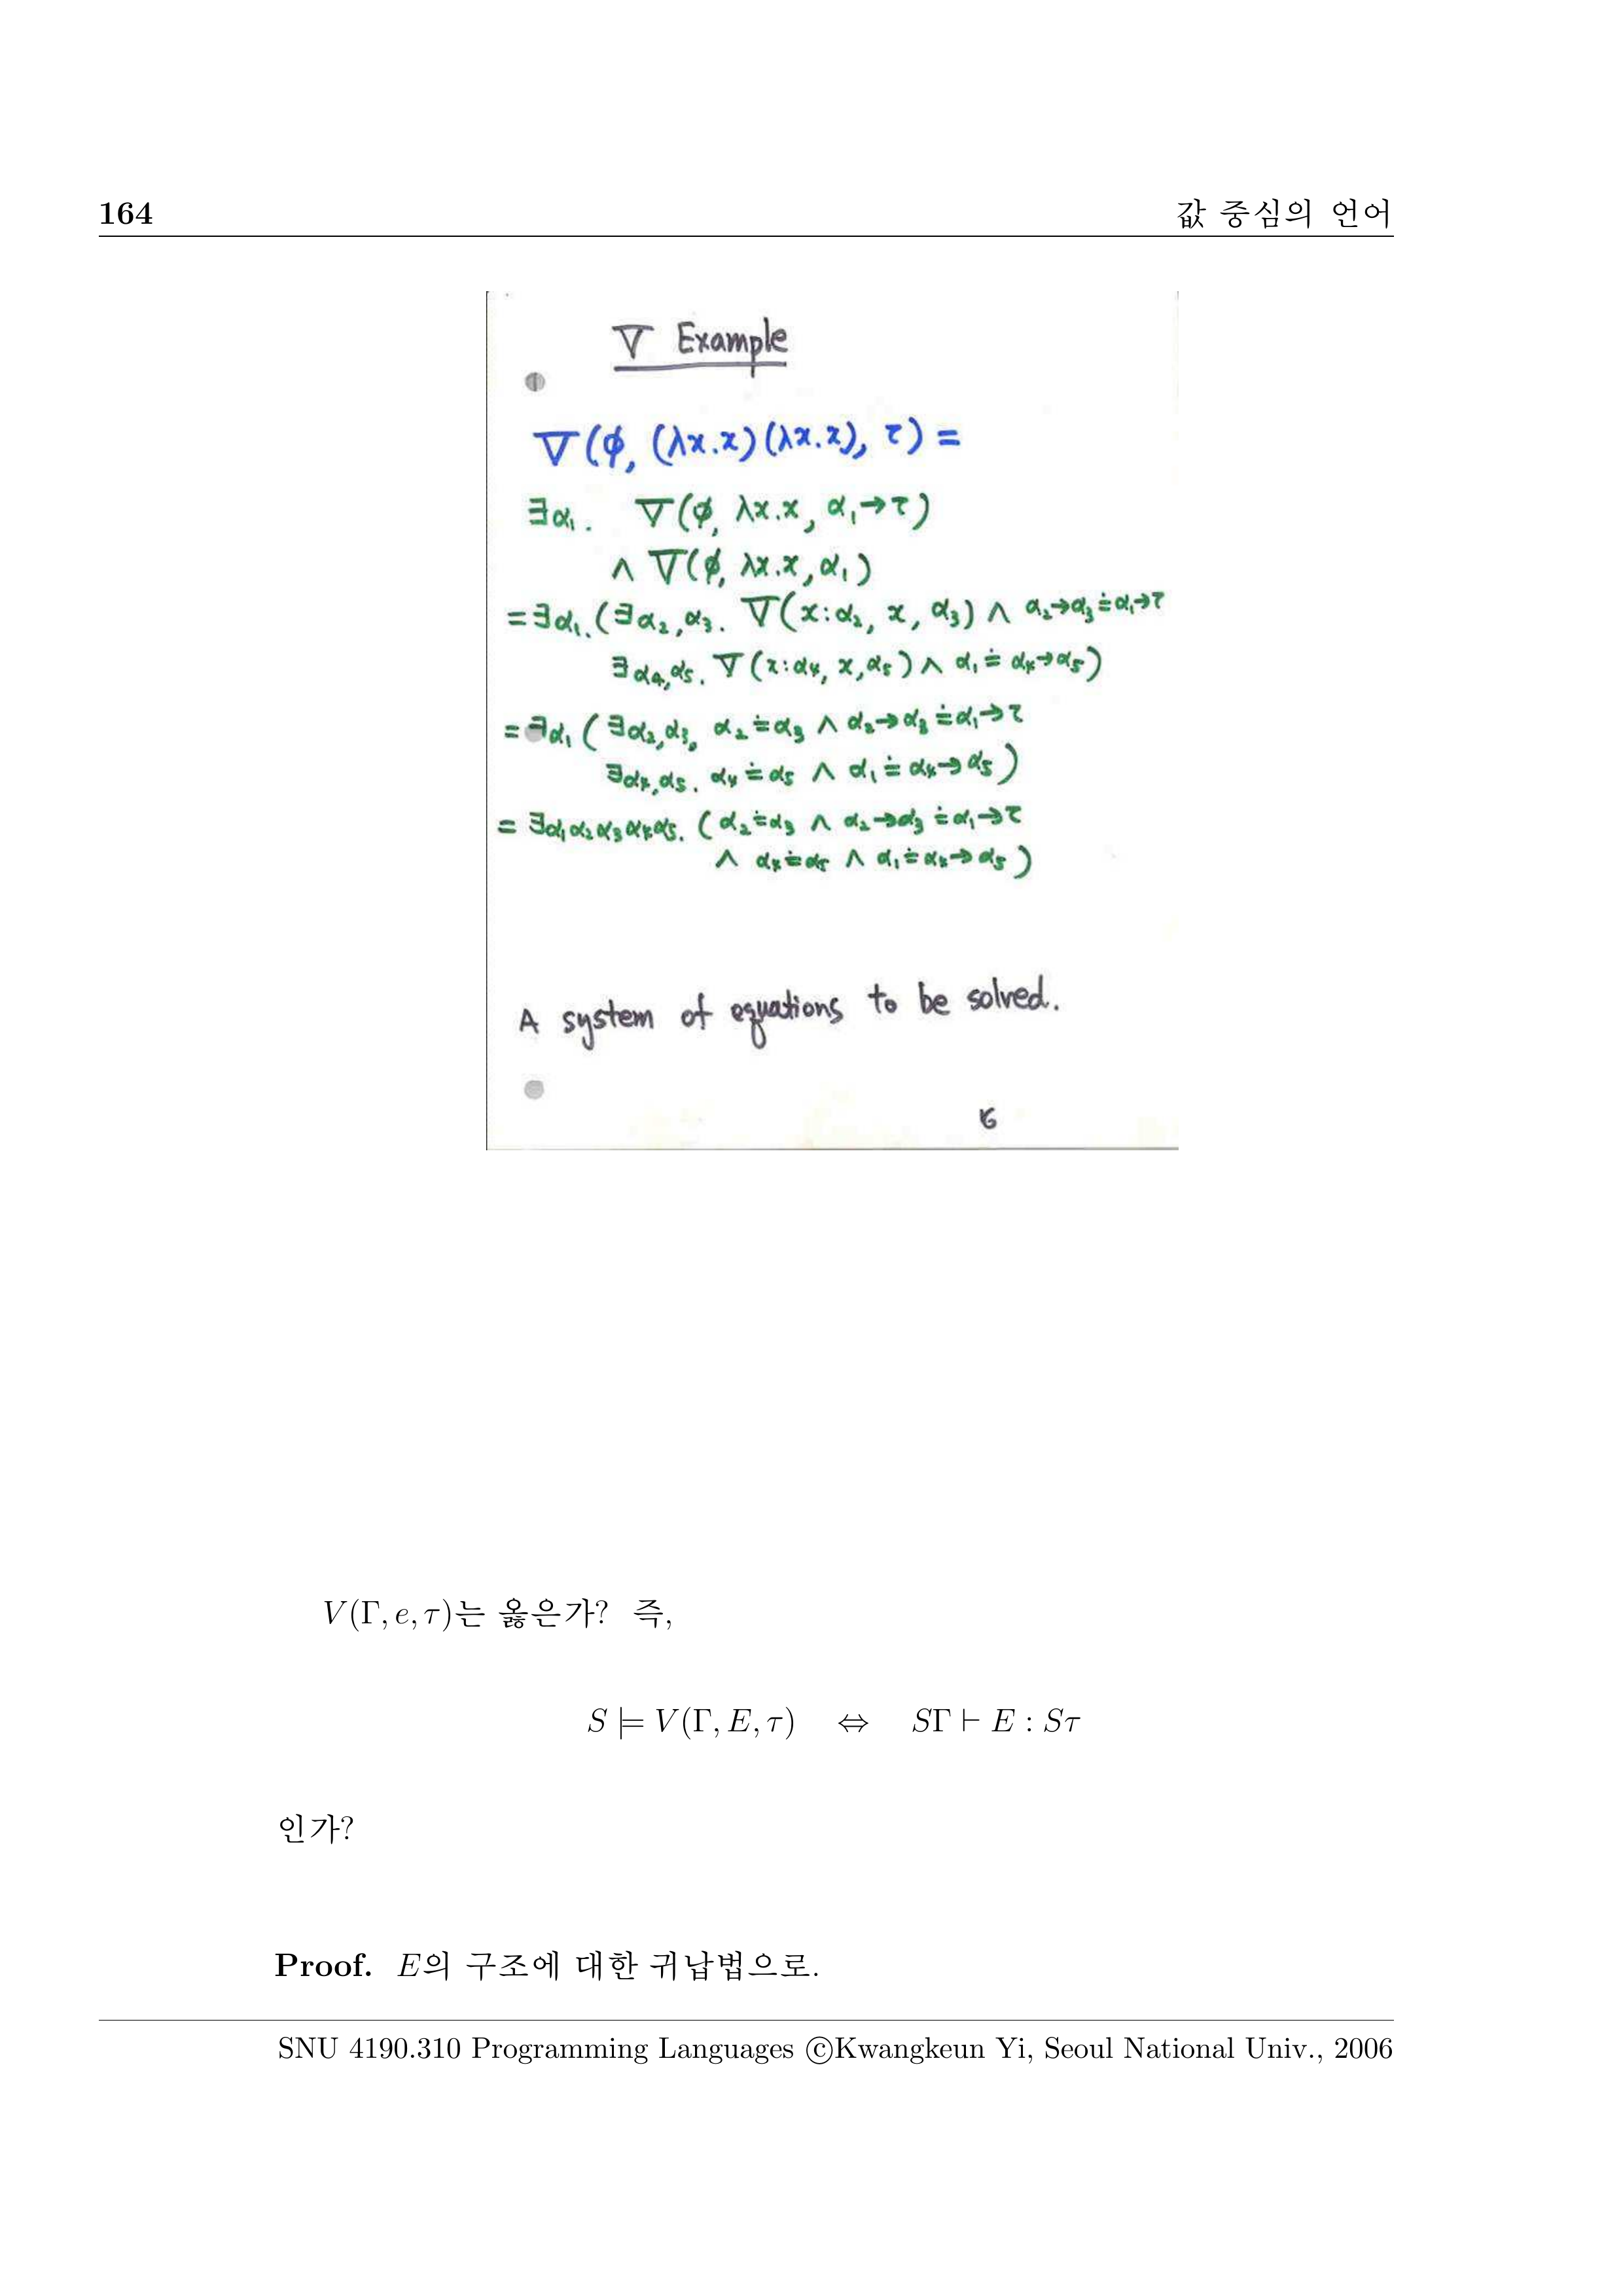 164 값 중심의 언어
∇ Example
∇(φ, (λx.x)(λx.x), τ) =
∃α₁. ∇(φ, λx.x, α₁→τ)
∧ ∇(φ, λx.x, α₁)
= ∃α₁.(∃α₂,α₃. ∇(x:α₂, x, α₃) ∧ α₂→α₃≐α₁→τ
∃α₄,α₅. ∇(x:α₄, x, α₅) ∧ α₁ ≐ α₄→α₅)
= ∃α₁ (∃α₂,α₃, α₂≐α₃ ∧ α₂→α₃≐α₁→τ
∃α₄,α₅. α₄≐α₅ ∧ α₁≐α₄→α₅)
= ∃α₁α₂α₃α₄α₅. (α₂≐α₃ ∧ α₂→α₃≐α₁→τ
∧ α₄≐α₅ ∧ α₁≐α₄→α₅)
A system of equations to be solved.
V(Γ, e, τ)는 옳은가? 즉,
S ⊨ V(Γ, E, τ) ⇔ SΓ ⊢ E : Sτ
인가?
Proof. E의 구조에 대한 귀납법으로.
SNU 4190.310 Programming Languages ©Kwangkeun Yi, Seoul National Univ., 2006